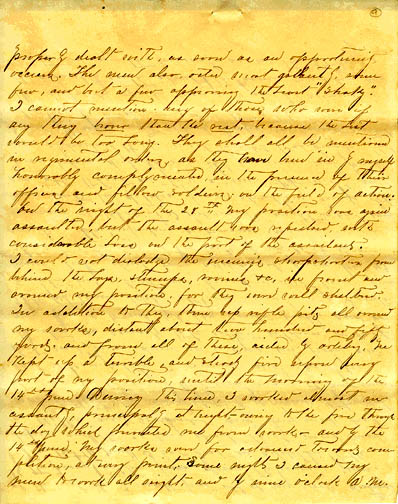 properly dealt with, as soon as an opportunity
occurs. The men also, acted most gallantly, some
few, and but a few appearing the least "Shaky".
I cannot mention any of those who won if
any thing more than the rest, because the list
would be too long. They shall all be mentioned
in regimental orders, as they have been by myself
honorably complimented, in the presence of their
officers and fellow soldiers, on the field of action.
On the night of the 28th my position was again
assaulted, but the assault was repulsed, with
considerable loss on the part of the assailants.
I could not dislodge the enemy's sharpshooters from
behind the logs, stumps, &c, in front and
around my position, for they were well sheltered.
In addition to this, threw up rifle pits all around
my works, distant about two hundred and fifty
yards, and from all of these aided by artillery, he
kept up a terrible and fire upon every
part of my position, until the morning of the
14th June. During this time, I worked almost
principally at night owing to the fire through
the day which prevented me from work and by the
14th June, my works were far advanced towards com-
pletion, at every point, some nights I caused my
men to work all night, and by nine o'clock A.M.